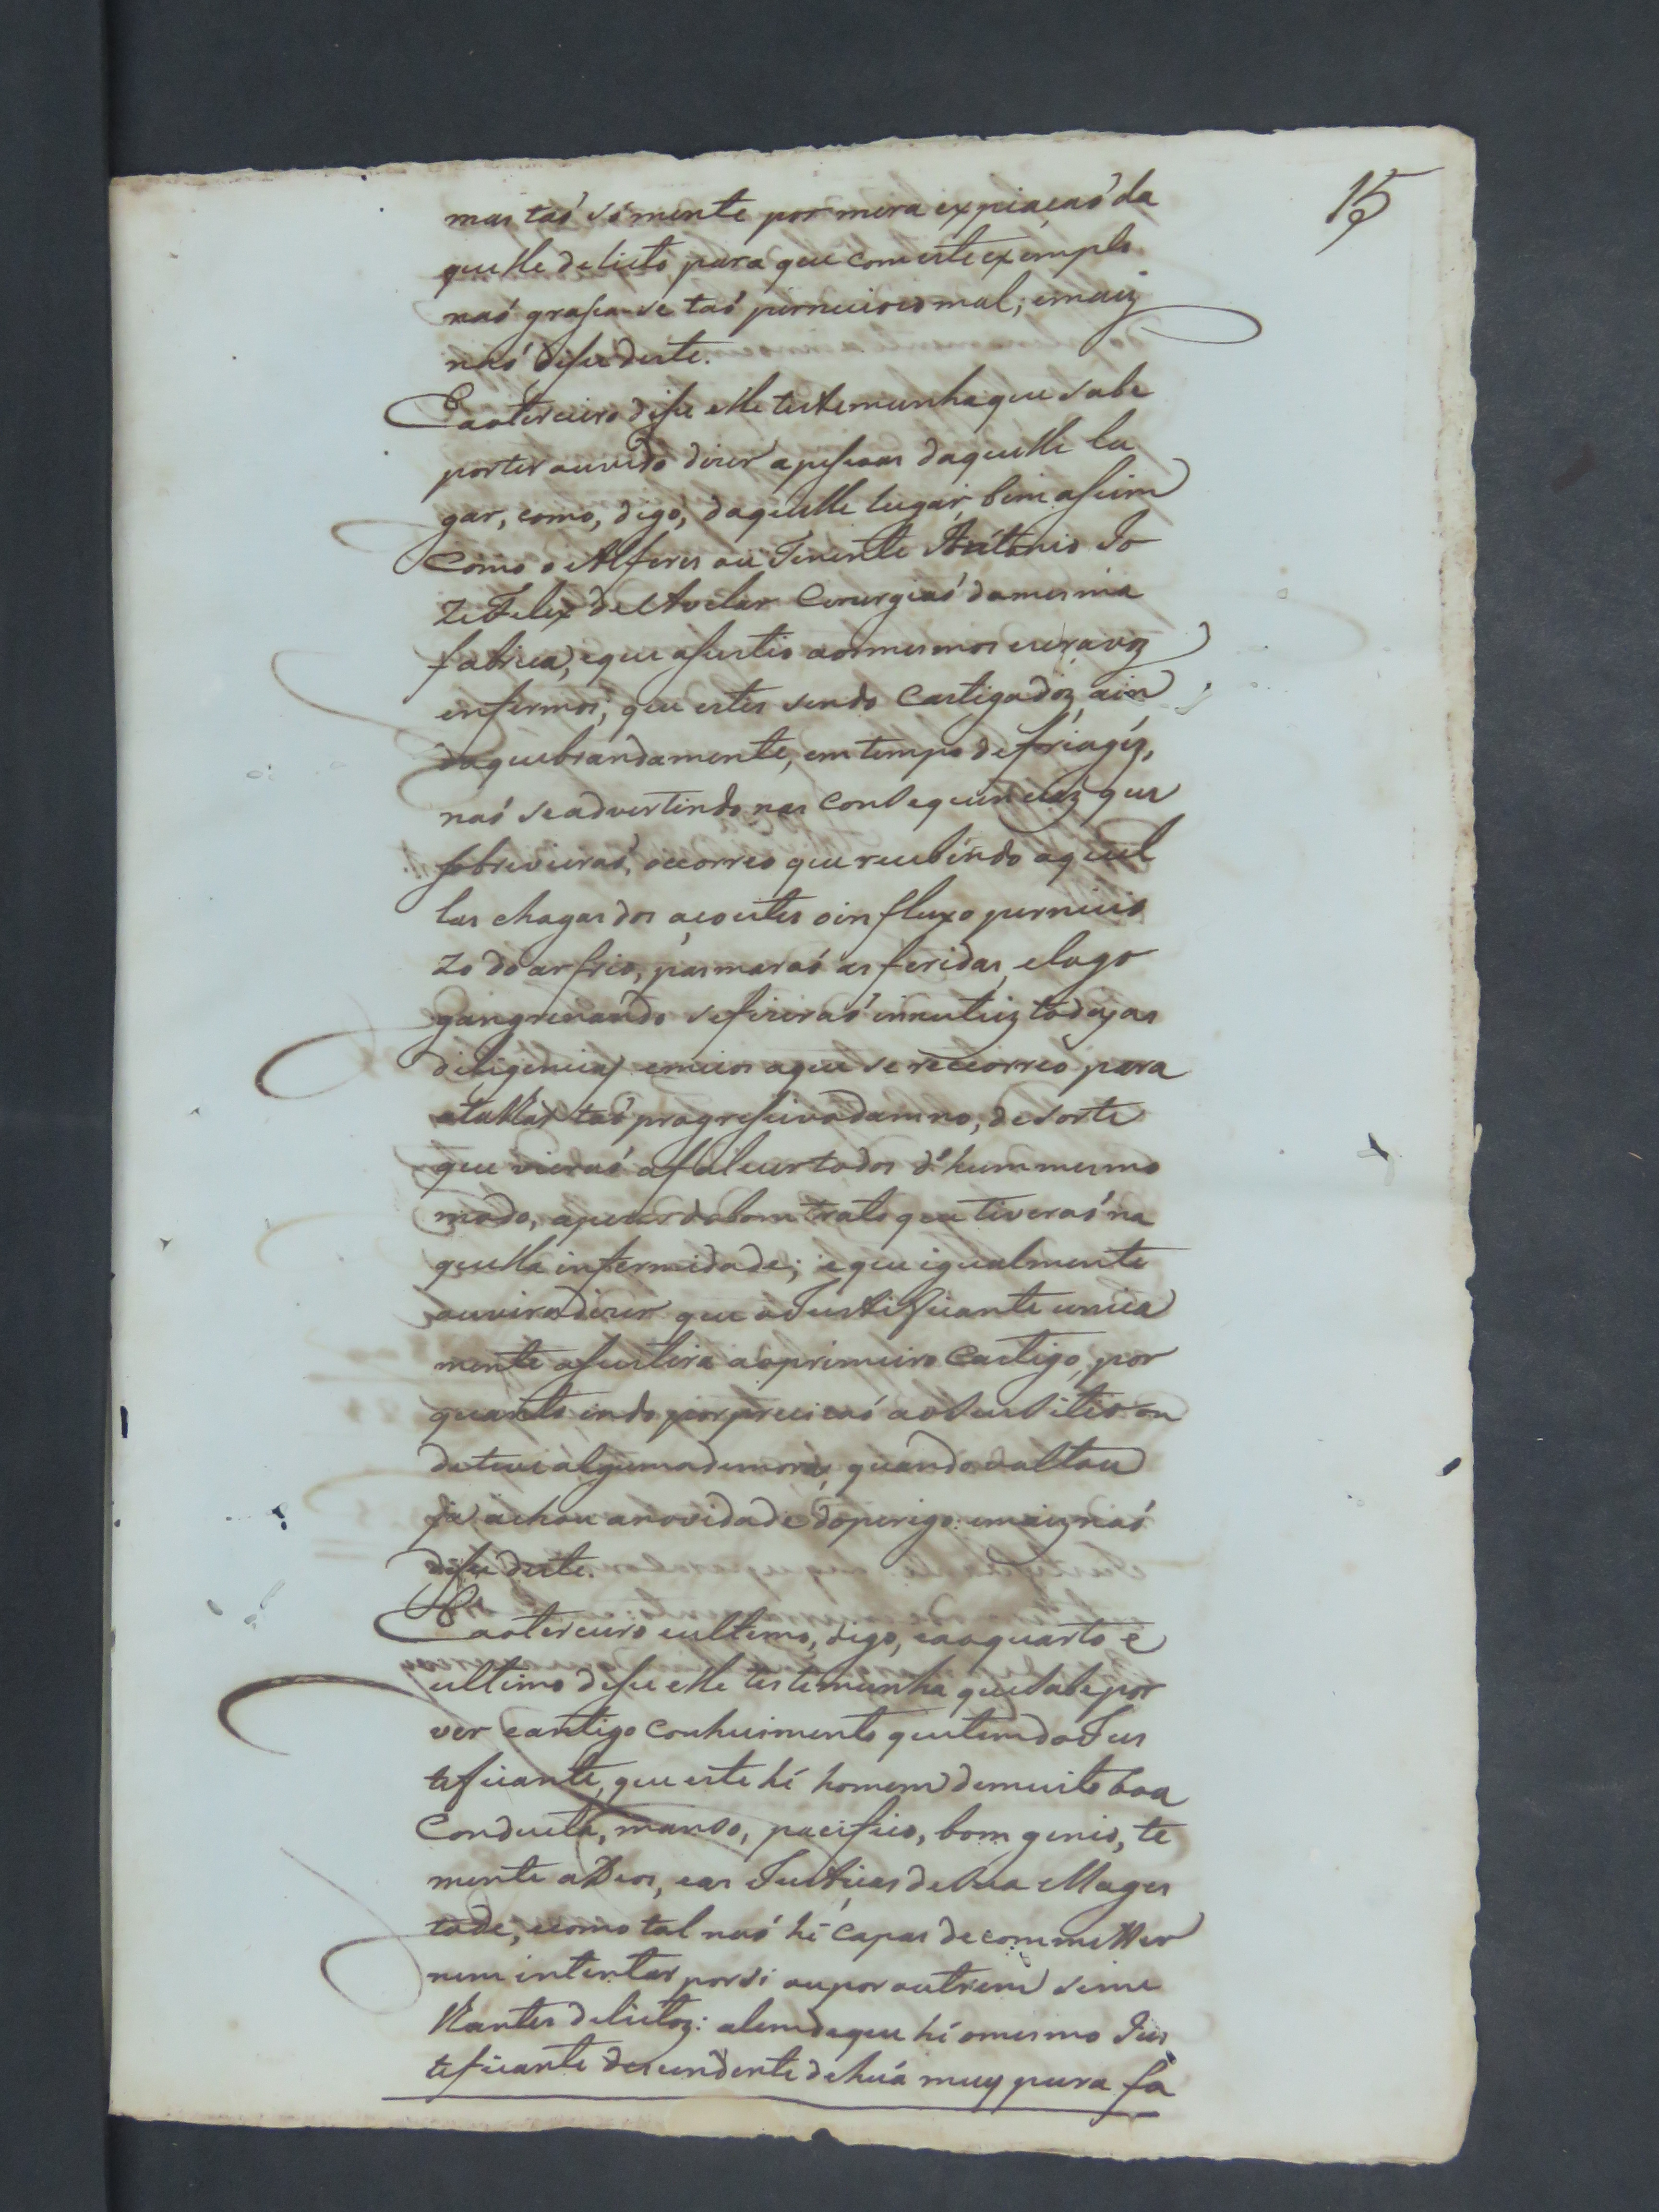 15
mas taó sómente por mera expiaçaó da
quelle delicto para que com este exemplo
naó grasa-se taó pernicioso mal; emaiz
naó disse deste.
E ao terceiro disse elle testemunha que sabe
por ter ouvido dizer a pessoas daquelle lu
gar, como, digo, daquelle lugar, bem assim
como o Alferes ou Tenente Antonio Jo
ze Felex de Avelar Cirurgiaó da mesma
fabrica, e que assistio aos mesmos escravoz
enfermos, que estes sendo Castigadoz, ain
da que brandamente, em tempo de friagéz,
naó se advertindo nas Consequenciaz que
sobrevieraó, occorreo que recebendo aquel
las chagas dos açoutes o influxo pernicio
zo do ar frio, pasmaraó as feridas, e logo
gangrenando se fizeraó innutiez todas as
diligencias e meios a que se reccorreo para
atalhar taó progressivo damno, de sorte
que vieraó a falecer todos d'hum mesmo
modo, apezar do bom trato que tiveraó na
quella infermidade; e que igualmente
ouvira dizer que o Justificante unica
mente assistira ao primeiro Castigo, por
quanto indo por precizaó ao seu sitio on
de teve alguma demora, quando voltou
ja achou a novidade do perigo: emaiz naó
disse deste.
E ao terceiro e ultimo, digo, e ao quarto e
ultimo disse elle testemunha que sabe por
ver e antigo Conhecimento que tem do Jus
tificante, que este hé homem de muito boa
Conducta, manso, pacifico, bom genio, te
mente a Deos, e as Justiças de Sua Mages
tade, e como tal naó hé capas de committer
nem intentar por si ou por outrem seme
lhantes delictoz: alem de que hé o mesmo Jus
tificante descendente de huá muy pura fa